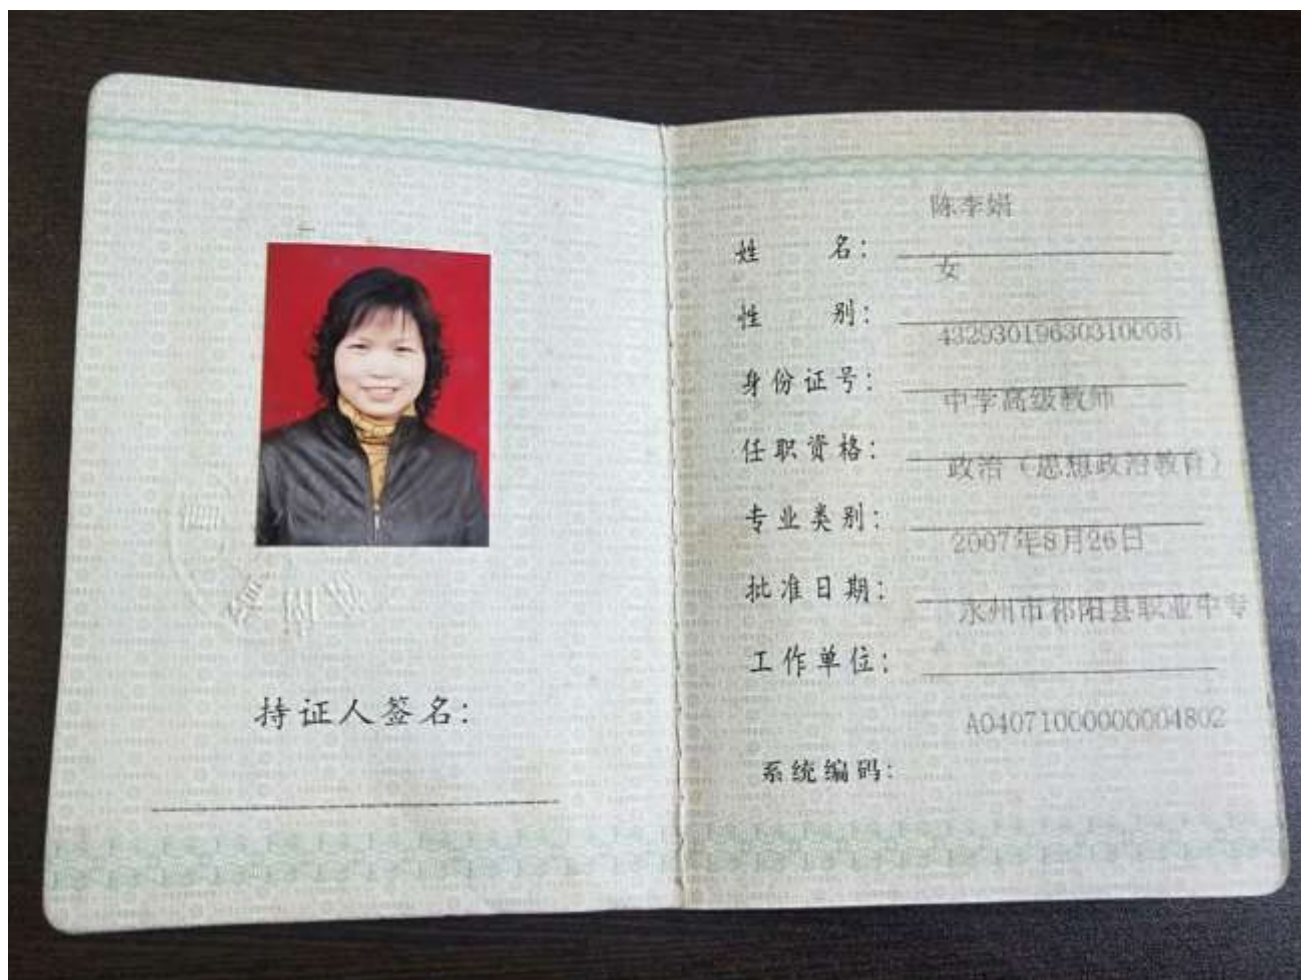 持证人签名:
姓 名: 陈李娟
性 别: 女
身份证号: 432930196303100081
任职资格: 中学高级教师
专业类别: 政治（思想政治教育）
批准日期: 2007年8月26日
工作单位: 永州市祁阳县职业中专
系统编码: A04071000000004802